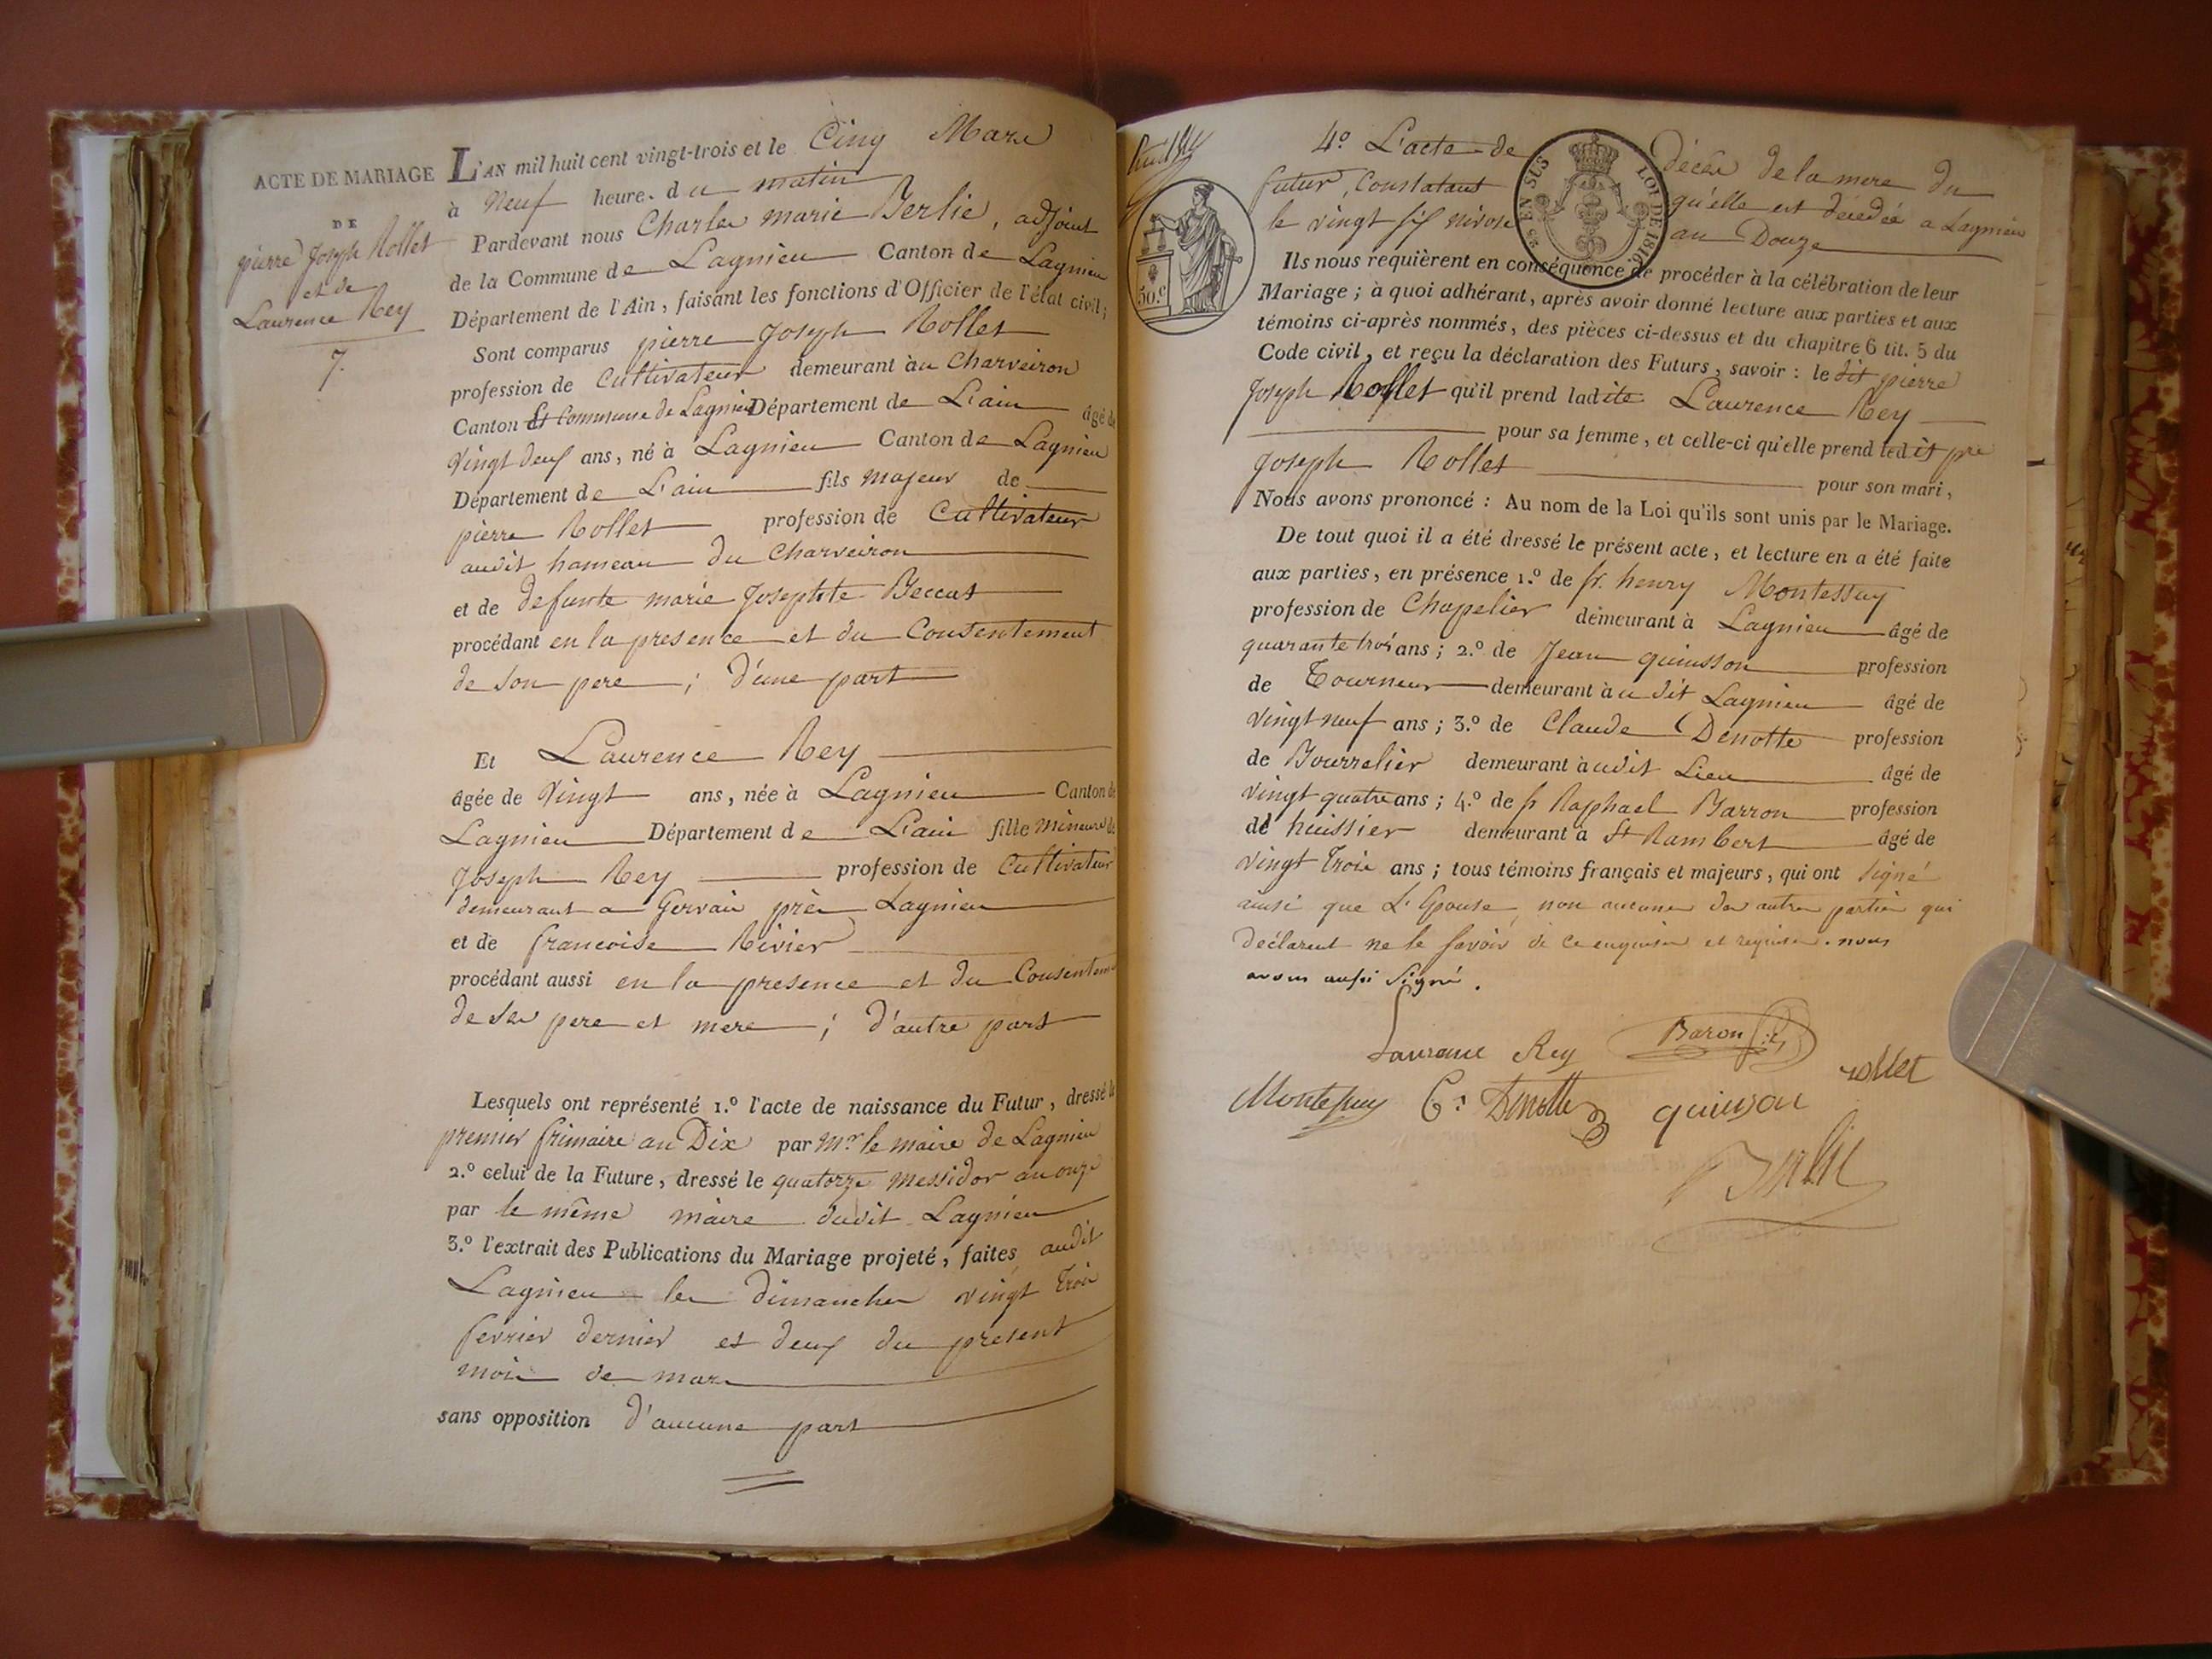 ACTE DE MARIAGE
DE
pierre Joseph Rollet
et de
Laurence Rey
7.
L'AN mil huit cent vingt-trois et le Cinq Mars
à Neuf heure. du matin
Pardevant nous Charles marie Berlie, adjoint
de la Commune de Lagnieu Canton de Lagnieu
Département de l'Ain, faisant les fonctions d'Officier de l'état civil;
Sont comparus pierre Joseph Rollet
profession de Cultivateur demeurant àu Charveiron
Canton Et Commune de Lagnieu Département de L'ain âgé de
Vingt deux ans, né à Lagnieu Canton de Lagnieu
Département de L'ain fils majeur de
pierre Rollet profession de Cultivateur
audit hameau du Charveiron
et de defunte marie Josephte Beccat
procédant en la presence et du Consentement
de son pere ; d'une part
Et Laurence Rey
âgée de Vingt ans, née à Lagnieu Canton de
Lagnieu Département de L'ain fille mineure de
Joseph Rey profession de Cultivateur
demeurant a Gervais près Lagnieu
et de francoise Rivier
procédant aussi en la presence et du Consentem
de ses pere et mere ; d'autre part
Lesquels ont représenté 1.º l'acte de naissance du Futur, dressé le
premier frimaire an Dix par Mr. le maire de Lagnieu
2.º celui de la Future, dressé le quatorze messidor an onze
par le même maire dudit Lagnieu
3.º l'extrait des Publications du Mariage projeté, faites audit
Lagnieu les dimanches vingt trois
fevrier dernier et deux du present
mois de mars
sans opposition d'aucune part
4º L'acte de décès de la mere du
futur, Constatant qu'elle est décédée a Lagnieu
le vingt six nivose an Douze
EN SUS LOI DE 1816.
50.c
Ils nous requièrent en conséquence de procéder à la célébration de leur
Mariage; à quoi adhérant, après avoir donné lecture aux parties et aux
témoins ci-après nommés, des pièces ci-dessus et du chapitre 6 tit. 5 du
Code civil, et reçu la déclaration des Futurs, savoir: le dit pierre
Joseph Rollet qu'il prend ladite Laurence Rey
pour sa femme, et celle-ci qu'elle prend ledit pre
Joseph Rollet pour son mari,
Nous avons prononcé: Au nom de la Loi qu'ils sont unis par le Mariage.
De tout quoi il a été dressé le présent acte, et lecture en a été faite
aux parties, en présence 1.º de fr. henry Montessuy
profession de Chapelier demeurant à Lagnieu âgé de
quarante trois ans; 2.º de Jean quinsson profession
de Tourneur demeurant àu dit Lagnieu âgé de
vingt neuf ans; 3.º de Claude Denotte profession
de Bourrelier demeurant àudit Lieu âgé de
vingt quatre ans; 4.º de fr Raphael Barron profession
de huissier demeurant à St Rambert âgé de
vingt Trois ans; tous témoins français et majeurs, qui ont signé
ainsi que L'Epouse, non aucunes des autres parties qui
déclarent ne le savoir de ce enquises et requises. nous
avons aussi signé.
Laurence Rey Baron
rollet
Montessuy C. Denotte quinson
Berlie